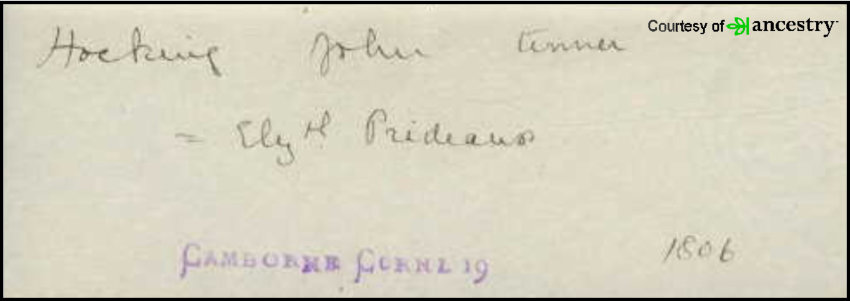 Courtesy of ancestry
Hocking John tinner
= Elyth Prideaux
CAMBORNE CORNL 19
1806